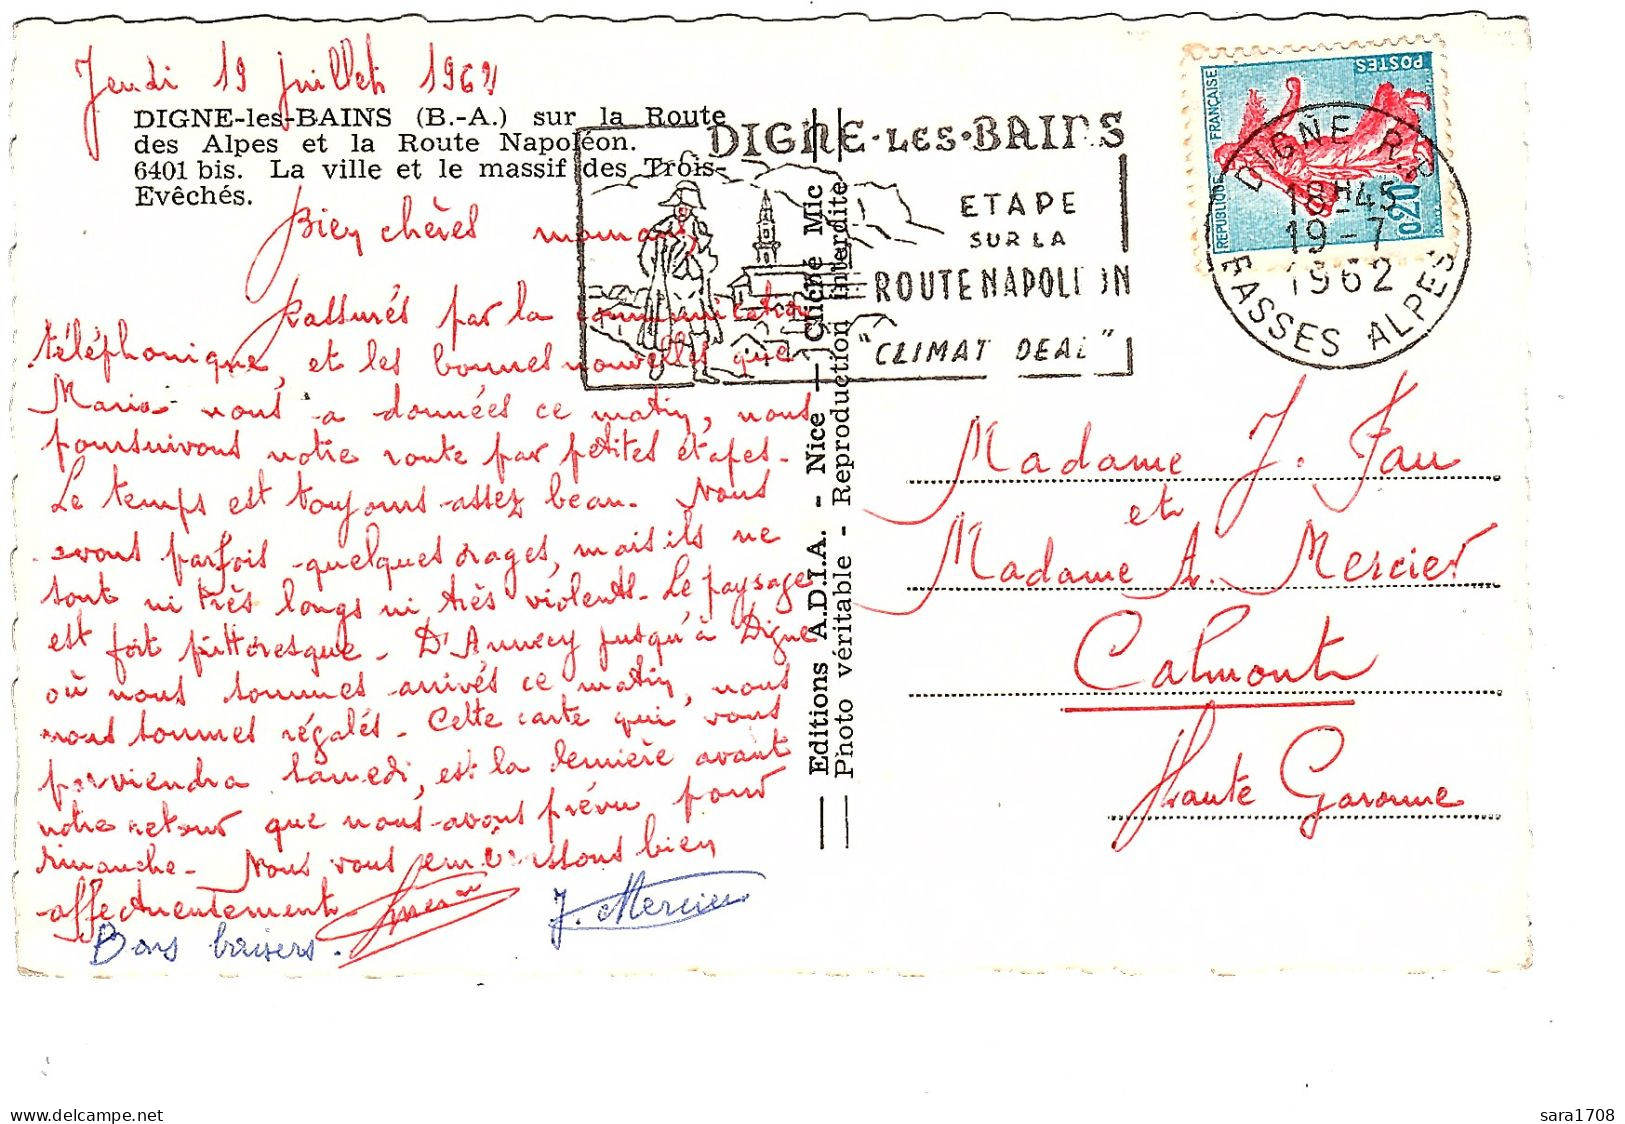 Jeudi 19 Juillet 1962
DIGNE-les-BAINS (B.-A.) sur la Route
des Alpes et la Route Napoléon.
6401 bis. La ville et le massif des Trois-
Evêchés.
Bien chères mamans,
Rassurés par la communication
téléphonique, et les bonnes nouvelles que
nous a données ce matin, nous
poursuivons notre route par petites étapes.
Le temps est toujours assez beau. Nous
avons parfois quelques orages, mais ils ne
sont ni très longs ni très violents. Le paysage
est fort pittoresque. D'Annecy jusqu'à Digne
où nous sommes arrivés ce matin, nous
nous sommes régalés. Cette carte qui vous
parviendra Samedi, est la dernière avant
notre retour que nous avons prévu pour
dimanche. Nous vous embrassons bien
affectueusement
Bons baisers.
J. Mercier
Editions A.D.I.A. - Nice — Cliché Mic
Photo véritable - Reproduction interdite
DIGNE·LES·BAINS
ETAPE
SUR LA
ROUTE NAPOLI ON
"CLIMAT DEAL"
REPUBLIQUE FRANÇAISE
POSTES
0,20
DIGNE R.P.
18H45
19-7
1962
BASSES ALPES
Madame J. Fau
et
Madame A. Mercier
Calmont
Haute Garonne
delcampe.net
sara1708